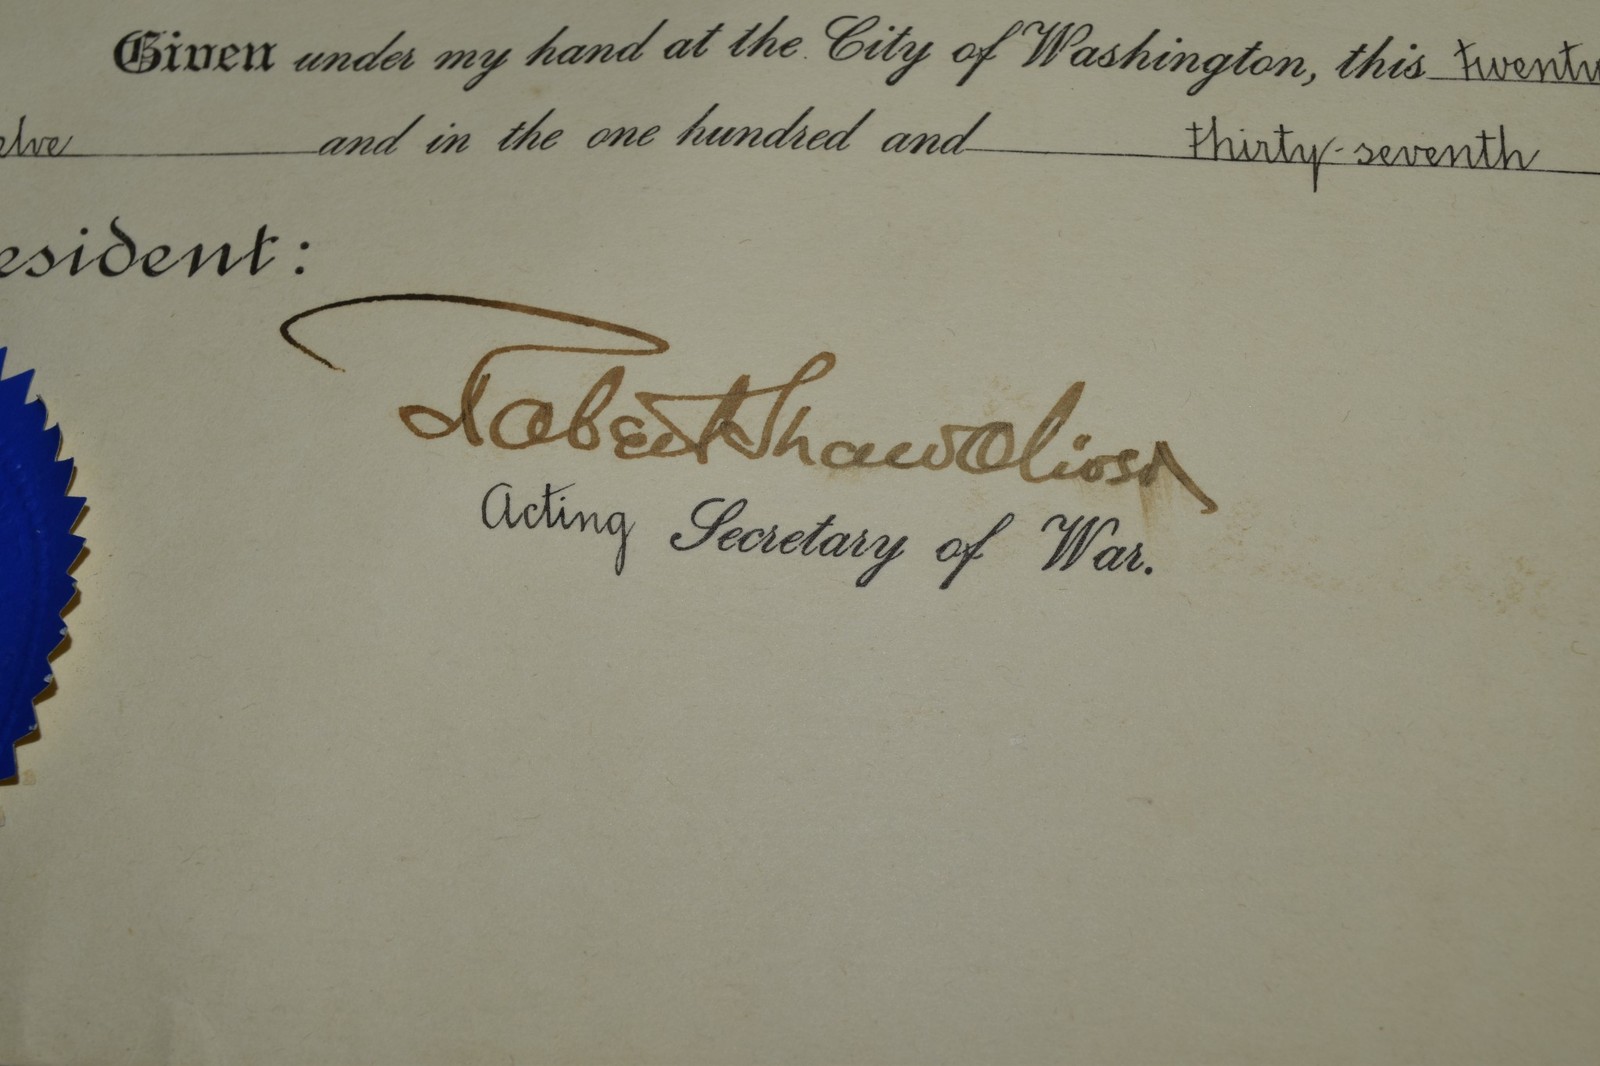 Given under my hand at the City of Washington, this twenty
elve and in the one hundred and thirty-seventh
esident:
Robert Shaw Oliver
Acting Secretary of War.